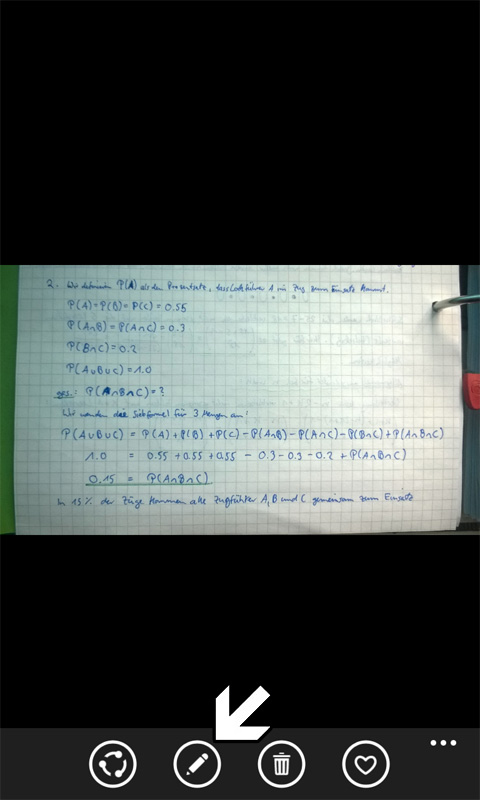 2. Wir definieren P(A) als den Prozentsatz, dass Lokführer A im Zug zum Einsatz kommt.
P(A)=P(B)=P(C)=0.55
P(A∩B)=P(A∩C)=0.3
P(B∩C)=0.2
P(A∪B∪C)=1.0
ges.: P(A∩B∩C)=?
Wir wenden die Siebformel für 3 Mengen an:
P(A∪B∪C) = P(A)+P(B)+P(C)-P(A∩B)-P(A∩C)-P(B∩C)+P(A∩B∩C)
1.0 = 0.55+0.55+0.55 - 0.3-0.3-0.2 + P(A∩B∩C)
0.15 = P(A∩B∩C)
In 15% der Züge kommen alle Zugführer A, B und C gemeinsam zum Einsatz